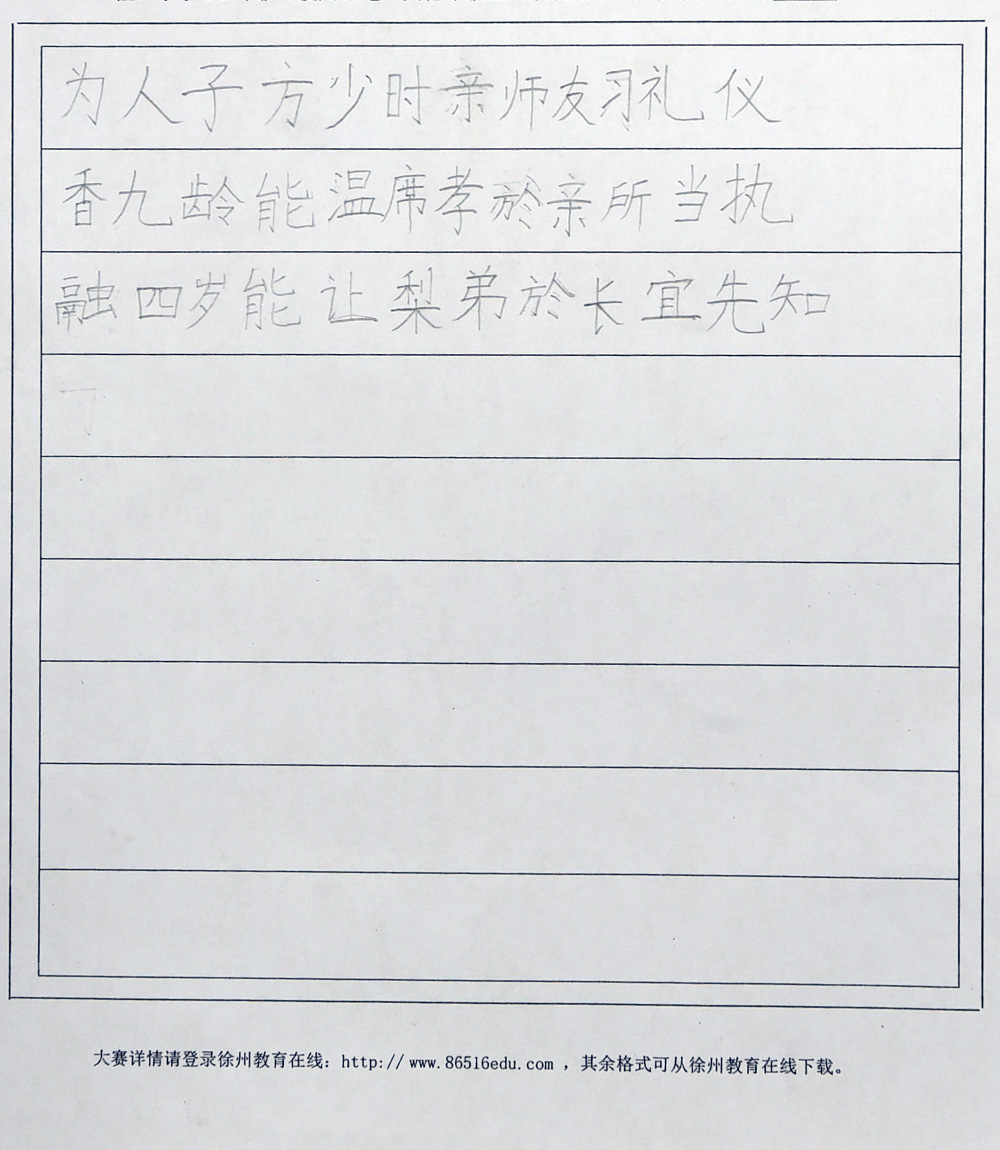 为人子方少时亲师友习礼仪
香九龄能温席孝於亲所当执
融四岁能让梨弟於长宜先知
大赛详情请登录徐州教育在线：http://www.86516edu.com，其余格式可从徐州教育在线下载。